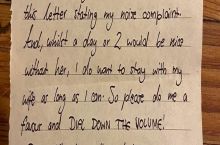 this letter stating my noise complaint.
And, whilst a day or 2 would be nice
without her, I do want to stay with my
wife as long as I can. So please do me a
favour and DIAL DOWN THE VOLUME!